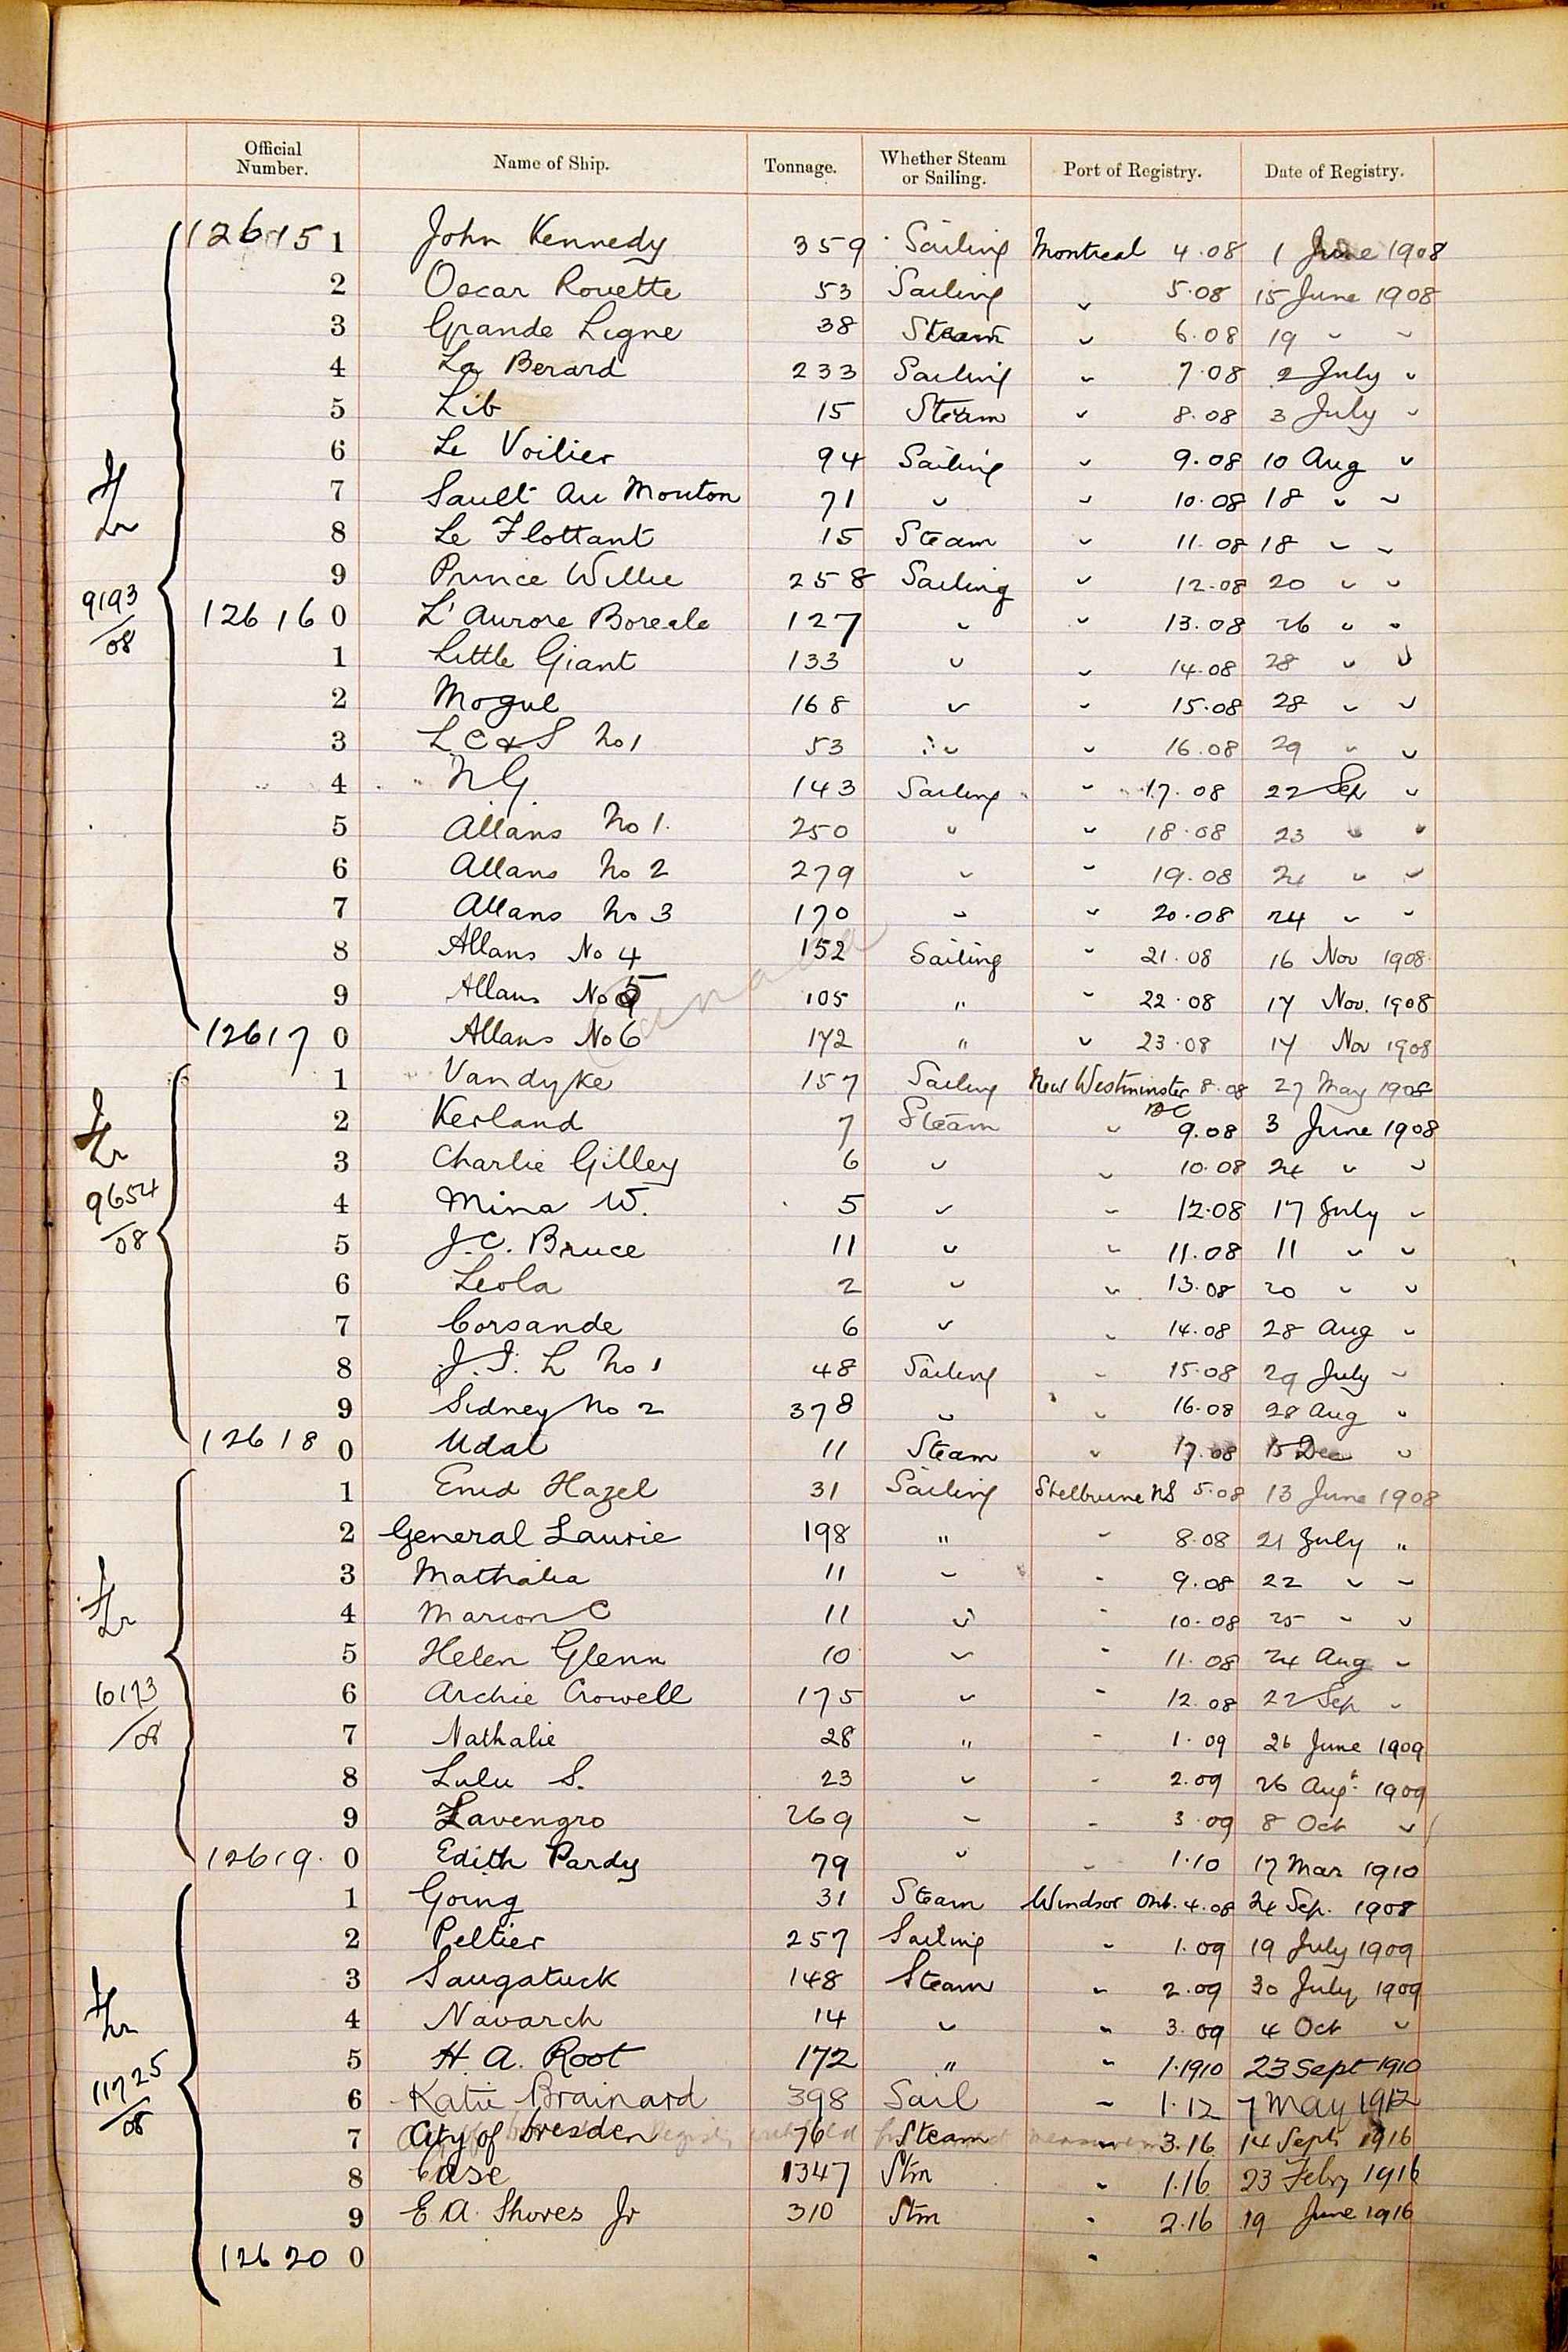 Official Number. Name of Ship. Tonnage. Whether Steam or Sailing. Port of Registry. Date of Registry.
12615 1 John Kennedy 359 Sailing Montreal 4.08 1 June 1908
2 Oscar Rouette 53 Sailing " 5.08 15 June 1908
3 Grande Ligne 38 Steam " 6.08 19 " "
4 La Berard 233 Sailing " 7.08 2 July "
5 Lib 15 Steam " 8.08 3 July "
6 Le Voilier 94 Sailing " 9.08 10 Aug "
7 Sault Au Mouton 71 " " 10.08 18 " "
8 Le Flottant 15 Steam " 11.08 18 " "
9 Prince Willie 258 Sailing " 12.08 20 " "
9193/08
12616 0 L'Aurore Boreale 127 " " 13.08 26 " "
1 Little Giant 133 " " 14.08 28 " "
2 Mogul 168 " " 15.08 28 " "
3 L C & S No 1 53 " " 16.08 29 " "
4 N G. 143 Sailing " 17.08 22 Sep "
5 Allans No 1. 250 " " 18.08 23 " "
6 Allans No 2 279 " " 19.08 24 " "
7 Allans No 3 170 " " 20.08 24 " "
8 Allans No 4 152 Sailing " 21.08 16 Nov 1908
9 Allans No 5 105 " " 22.08 17 Nov. 1908
12617 0 Allans No 6 172 " " 23.08 17 Nov 1908
Canada
1 Vandyke 157 Sailing New Westminster BC 8.08 27 May 1908
2 Kerland 7 Steam " 9.08 3 June 1908
3 Charlie Gilley 6 " " 10.08 24 " "
9654/08
4 Mina W. 5 " " 12.08 17 July "
5 J.C. Bruce 11 " " 11.08 11 " "
6 Leola 2 " " 13.08 20 " "
7 Corsande 6 " " 14.08 28 Aug "
8 J.I. L No 1 48 Sailing " 15.08 29 July "
9 Sidney No 2 378 " " 16.08 28 Aug "
12618 0 Udal 11 Steam " 17.08 15 Dec "
1 Enid Hazel 31 Sailing Shelburne NS 5.08 13 June 1908
2 General Laurie 198 " " 8.08 21 July "
3 Mathalia 11 " " 9.08 22 " "
4 Marion C 11 " " 10.08 25 " "
5 Helen Glenn 10 " " 11.08 24 Aug "
6 Archie Crowell 175 " " 12.08 22 Sep "
10173/08
7 Nathalie 28 " " 1.09 26 June 1909
8 Lulu S. 23 " " 2.09 26 Augt. 1909
9 Lavengro 269 " " 3.09 8 Oct "
12619. 0 Edith Pardy 79 " " 1.10 17 Mar 1910
1 Going 31 Steam Windsor Ont. 4.08 24 Sep. 1908
2 Peltier 257 Sailing " 1.09 19 July 1909
3 Saugatuck 148 Steam " 2.09 30 July 1909
4 Navarch 14 " " 3.09 4 Oct "
5 H. A. Root 172 " " 1.1910 23 Sept 1910
11725/08
6 Katie Brainard 398 Sail " 1.12 7 May 1912
7 City of Dresden 76 Steam " 3.16 14 Sept 1916
8 Case 1347 Stm " 1.16 23 Febry 1916
9 E.A. Shores Jr 310 Stm " 2.16 19 June 1916
12620 0 "